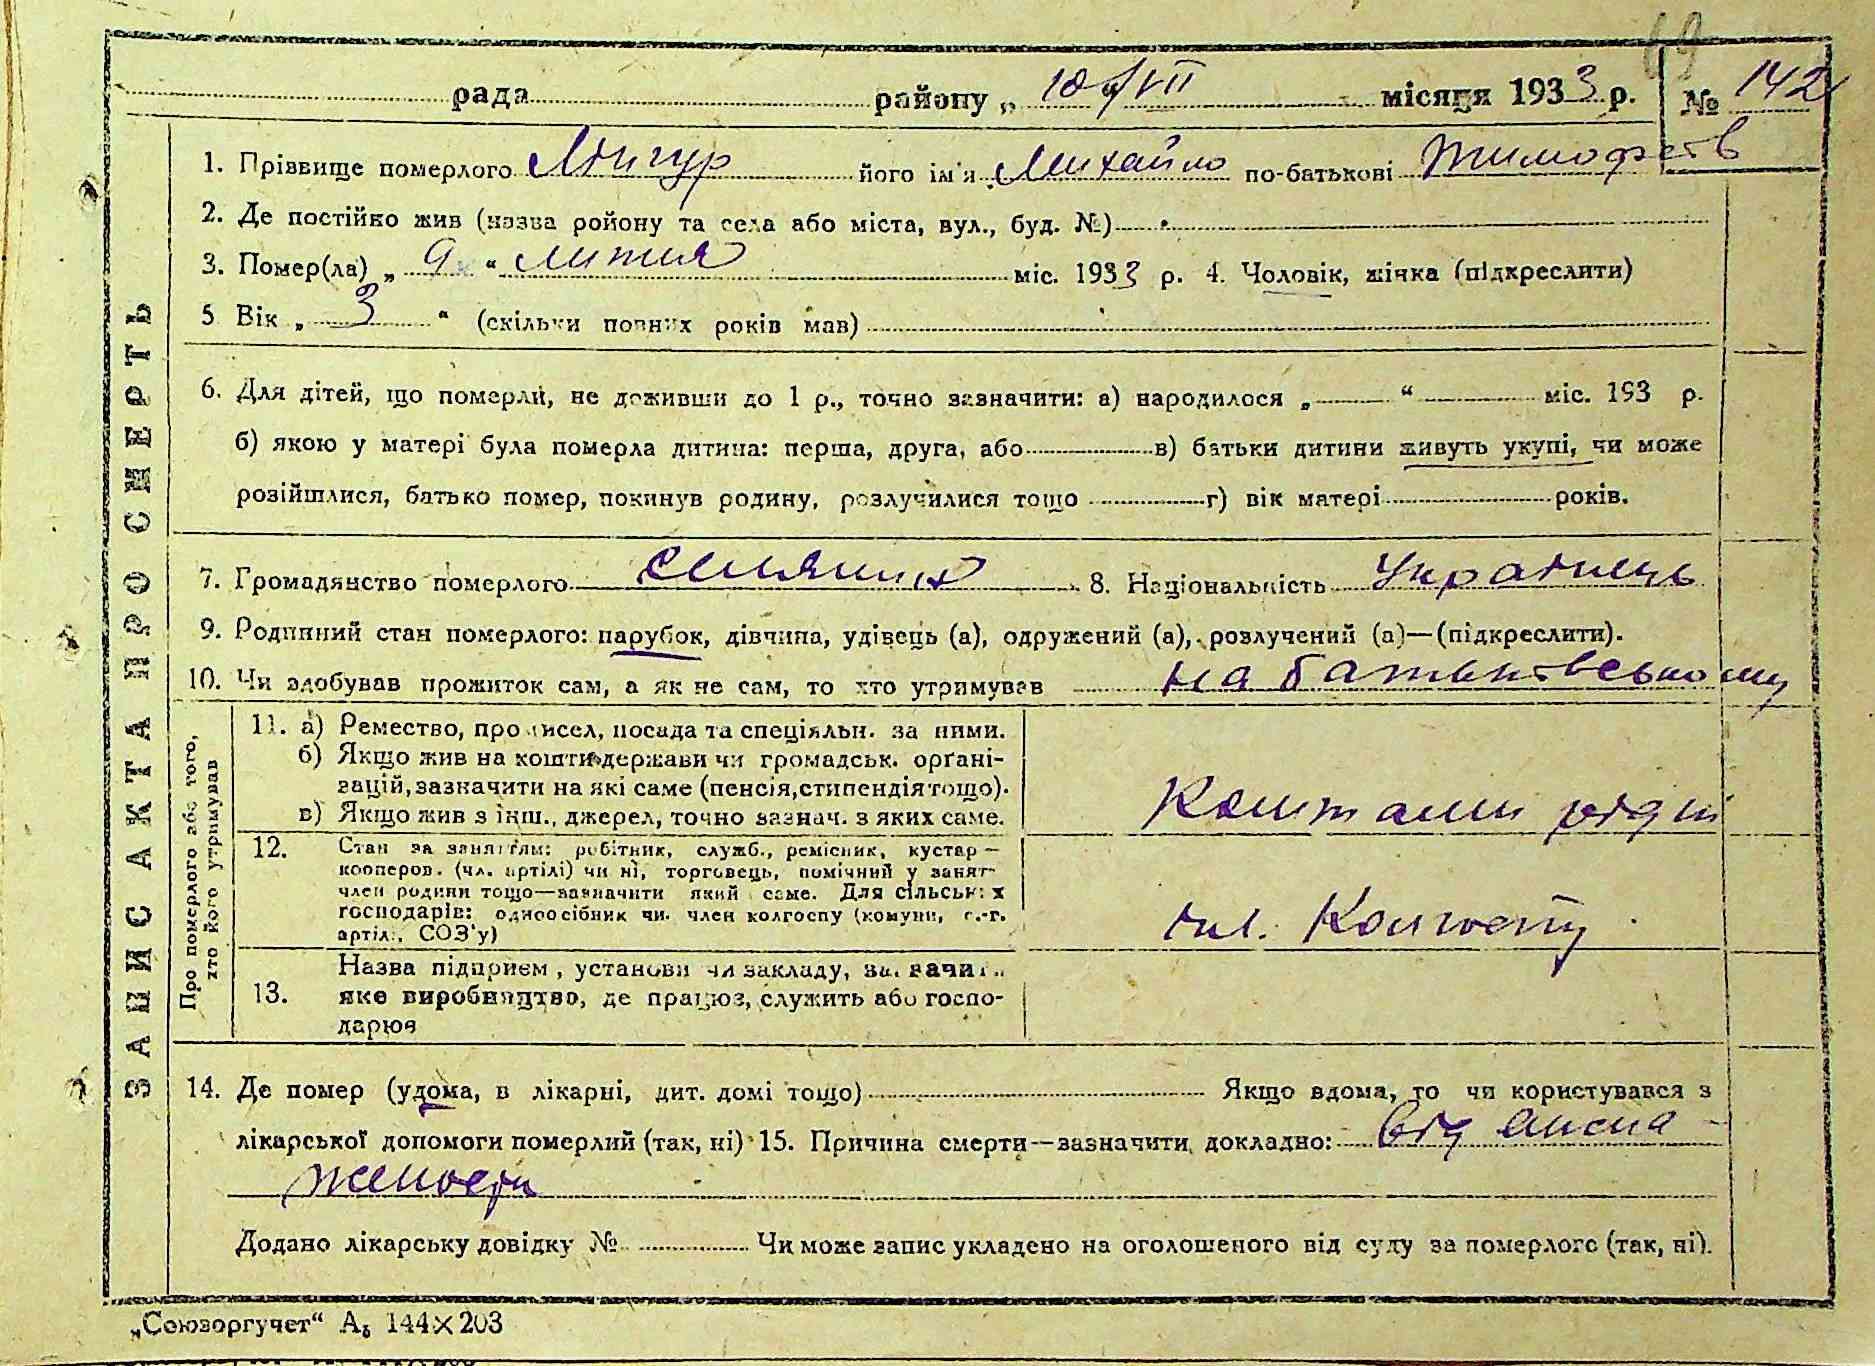 69
рада району „ 10 “ VII місяця 1933 р. № 142
ЗАПИС АКТА ПРО СМЕРТЬ
1. Прізвище померлого Мігур його ім'я Михайло по-батькові Тимофєєв
2. Де постійно жив (назва ройону та села або міста, вул., буд. №)
3. Помер(ла) „ 9 “ липня міс. 1933 р. 4. Чоловік, жінка (підкреслити)
5 Вік „ 3 “ (скільки повних років мав)
6. Для дітей, що померли, не доживши до 1 р., точно зазначити: а) народилося „ “ міс. 193 р.
б) якою у матері була померла дитина: перша, друга, або в) батьки дитини живуть укупі, чи може
розійшлися, батько помер, покинув родину, розлучилися тощо г) вік матері років.
7. Громадянство померлого селянин 8. Національність Українець
9. Родинний стан померлого: парубок, дівчина, удівець (а), одружений (а), розлучений (а)—(підкреслити).
10. Чи здобував прожиток сам, а як не сам, то хто утримував на батьківському
Про померлого або того,
хто його утримував
11. а) Ремество, промисел, посада та спеціяльн. за ними.
б) Якщо жив на кошти держави чи громадськ. орґані-
зацій, зазначити на які саме (пенсія, стипендія тощо).
в) Якщо жив з інш., джерел, точно зазнач. з яких саме.
Коштами рідні
12. Стан за заняттям: робітник, служб., ремісник, кустар—
кооперов. (чл. артілі) чи ні, торговець, помічний у занят-
член родини тощо—зазначити який саме. Для сільських
господарів: одноосібник чи член колгоспу (комуни, с.-г.
артіл., СОЗ'у)
чл. Колгоспу
13. Назва підприєм, установи чи закладу, зазначити
яке виробництво, де працює, служить або госпо-
дарює
14. Де помер (удома, в лікарні, дит. домі тощо) Якщо вдома, то чи користувався з
лікарської допомоги померлий (так, ні) 15. Причина смерти—зазначити докладно: від висна-
жености
Додано лікарську довідку № Чи може запис укладено на оголошеного від суду за померлого (так, ні).
„Союзоргучет“ А₅ 144×203